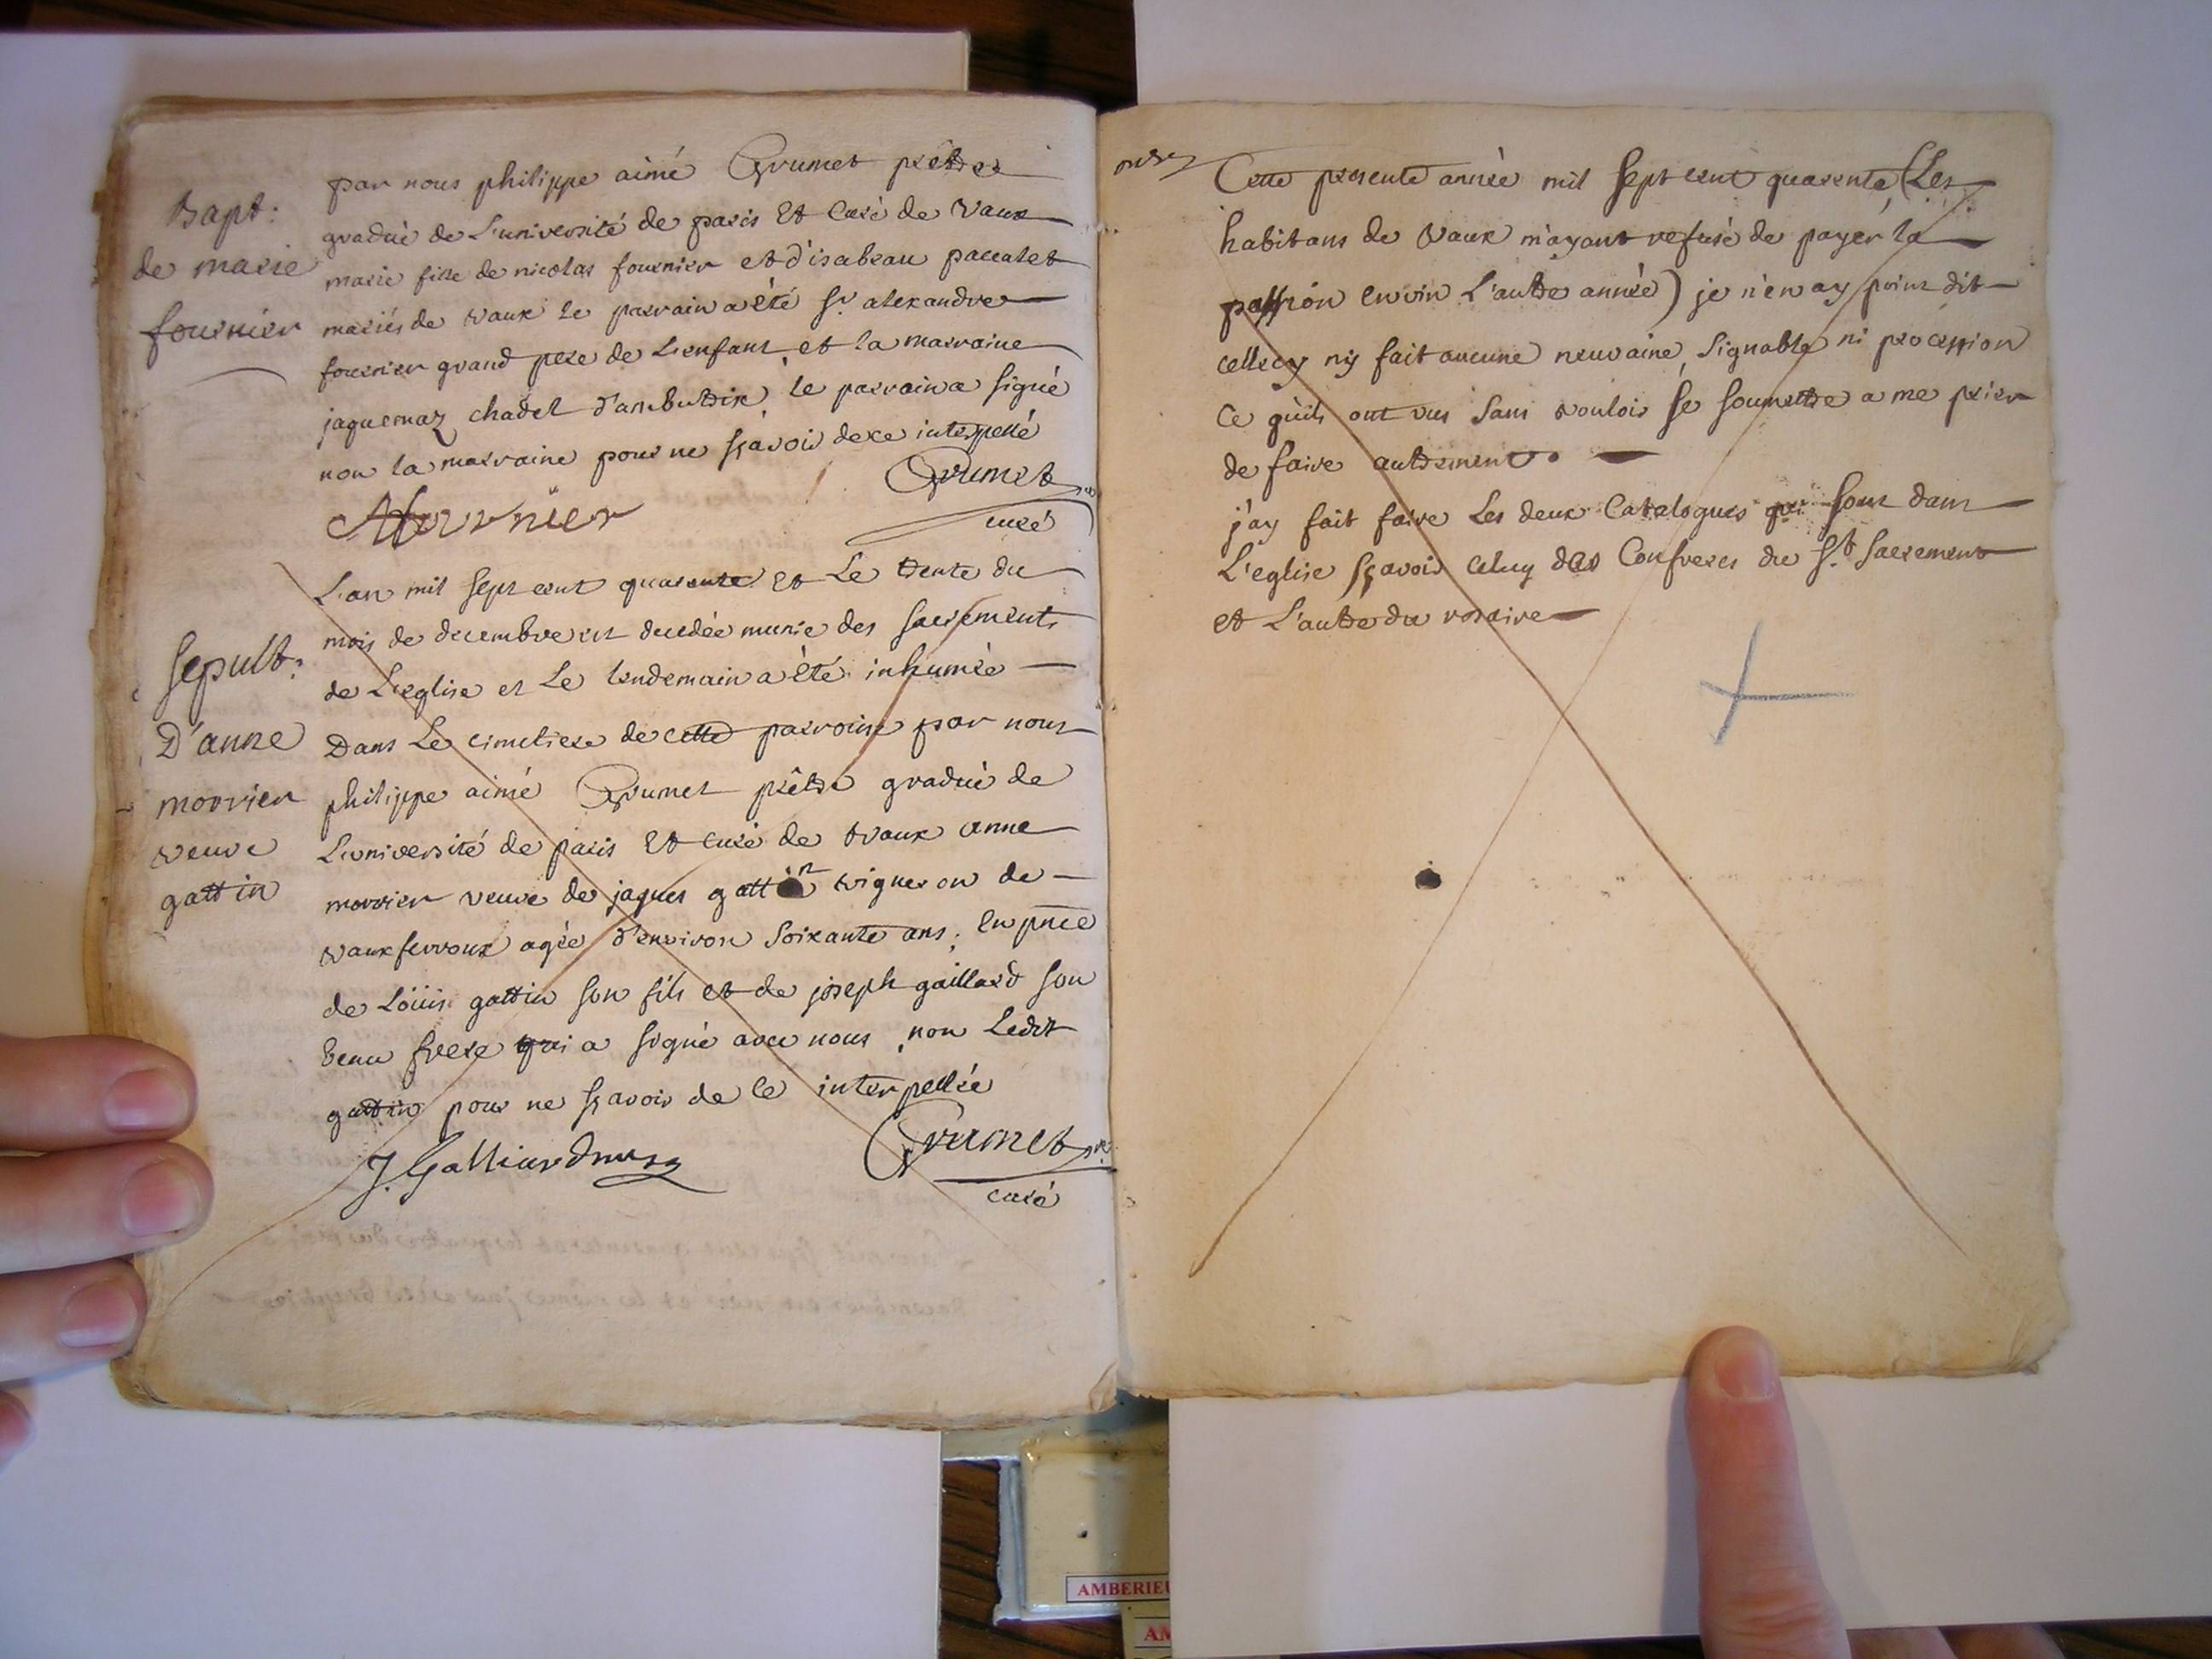 Bapt:
de marie
fournier
par nous philippe aimé Grumet prêtre
gradué de L'université de paris Et Curé de Vaux
marie fille de nicolas fournier et d'isabeau paccalet
mariés de vaux le parrain a été Sr. alexandre
fournier grand pere de L'enfant, et la marraine
jaquemaz chadel d'ambutrix, le parrain a signé
non la marraine pour ne sçavoir de ce interpellé
Grumet
curé
Afournier
Sépult:
D'anne
morrier
veuve
gattin
L'an mil sept cent quarente et Le trente du
mois de decembre est decedée munie des sacrements
de L'eglise et Le lendemain a été inhumée
Dans Le cimetiere de cette parroisse par nous
philippe aimé Grumet prêtre gradué de
L'université de paris Et curé de vaux anne
morrier veuve de jaques gattin vigneron de
vaux fevroux agée d'environ soixante ans, En pnce
de Loüis gattin son fils et de joseph gaillard son
beau frere qui a signé avec nous, non Ledit
gattin pour ne sçavoir de ce interpellée
J. Galliard
Grumet
curé
Cette presente année mil sept cent quarente (Les
habitans de vaux m'ayant refusé de payer la
passion en vin L'autre année) je n'en ay point dit
celle cy ny fait aucune neuvaine, signable ni procession
ce qu'ils ont vus sans vouloir se soumettre a me prier
de faire autrement.
j'ay fait faire Les deux Catalogues qui sont dans
L'eglise sçavoir celuy des Confreres du St. Sacrement
et L'autre du rosaire
AMBERIEU